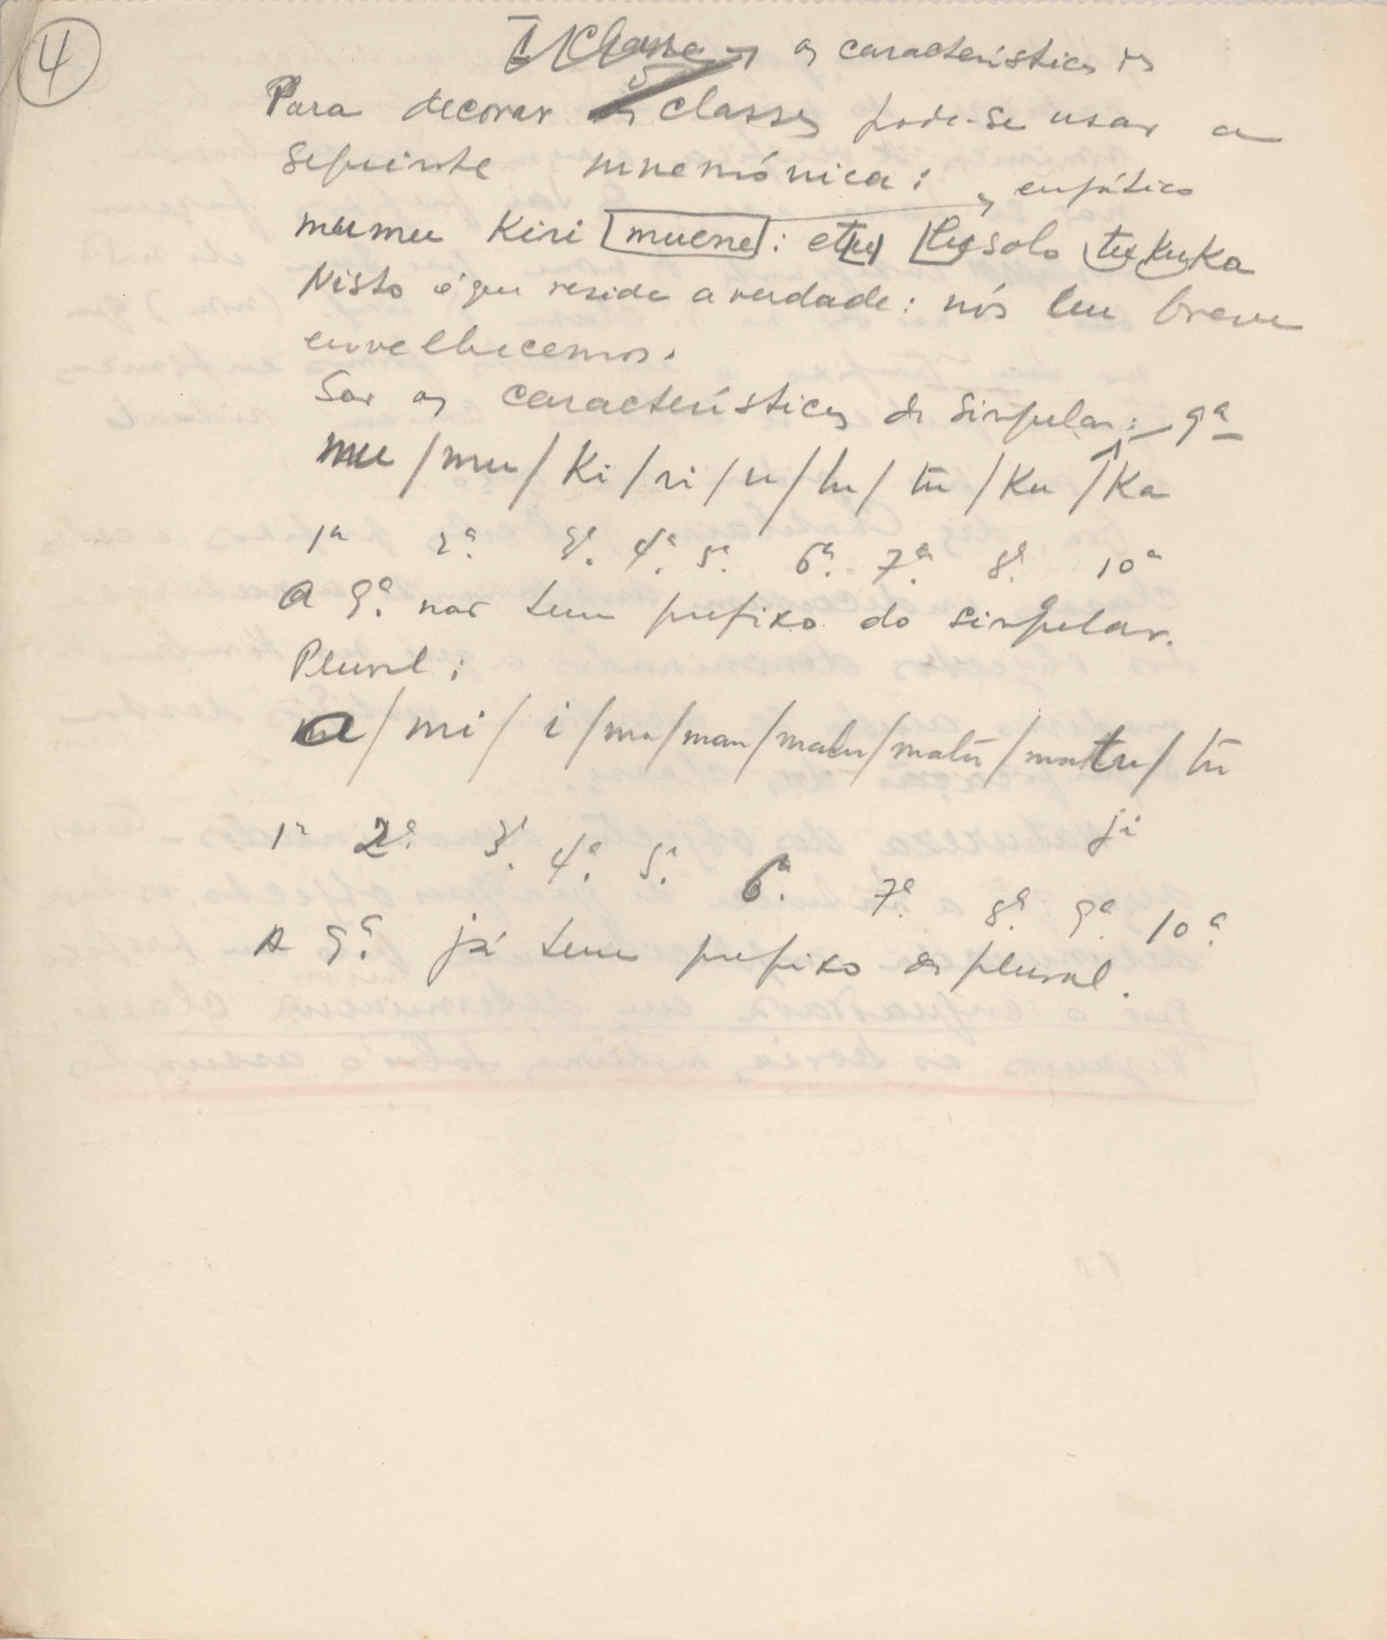 4
I Classe as características das
Para decorar as classes pode-se usar a
seguinte mnemónica: enfático
mumu Kiri muene: etu lusolo tukuka
Nisto é que reside a verdade: nós bem breve
envelhecemos.
São as características do singular: 9ª
mu / mu / Ki / ri / u / lu / tu / Ku / Ka
1ª 2ª. 3ª. 4ª. 5ª. 6ª. 7ª. 8ª. 10ª
A 9ª. não tem prefixo do singular.
Plural:
a / mi / i / ma / mau / malu / matu / matu / tu
ji
1ª 2ª. 3ª. 4ª. 5ª. 6ª. 7ª. 8ª. 9ª. 10ª.
A 9ª. já tem prefixo do plural.